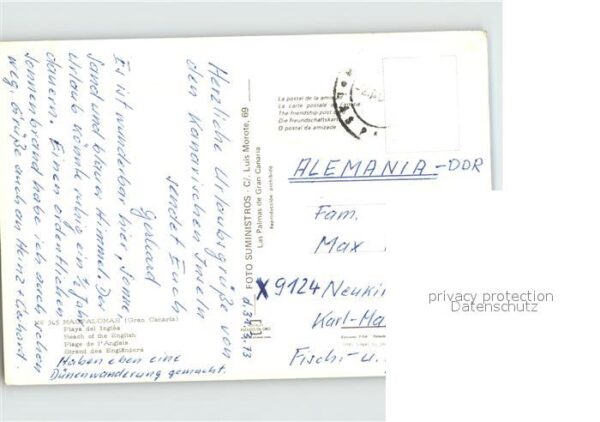 Herzliche Urlaubsgrüße von
den Kanarischen Inseln
sendet Euch
Gerhard
Es ist wunderbar hier, Sonne,
Sand und blauer Himmel. Der
Urlaub könnte ruhig ein ½ Jahr
dauern. Einen ordentlichen
Sonnenbrand habe ich auch schon
weg. Grüße auch an Heinz
345 MASPALOMAS (Gran Canaria)
Playa del Inglés
Beach of the English
Plage de l'Anglais
Strand des Engländers
Haben eben eine
Dünenwanderung gemacht.
FOTO SUMINISTROS - C/. Luis Morote, 69
Las Palmas de Gran Canaria
Reproducción prohibida
La postal de la
La carte postale
The friendship post
Die freundschaftskar
O postal da amizade
ALEMANIA-DDR
Fam.
Max
X 9124 Neukir
Karl-Ha
Fischi-u.
privacy protection
Datenschutz